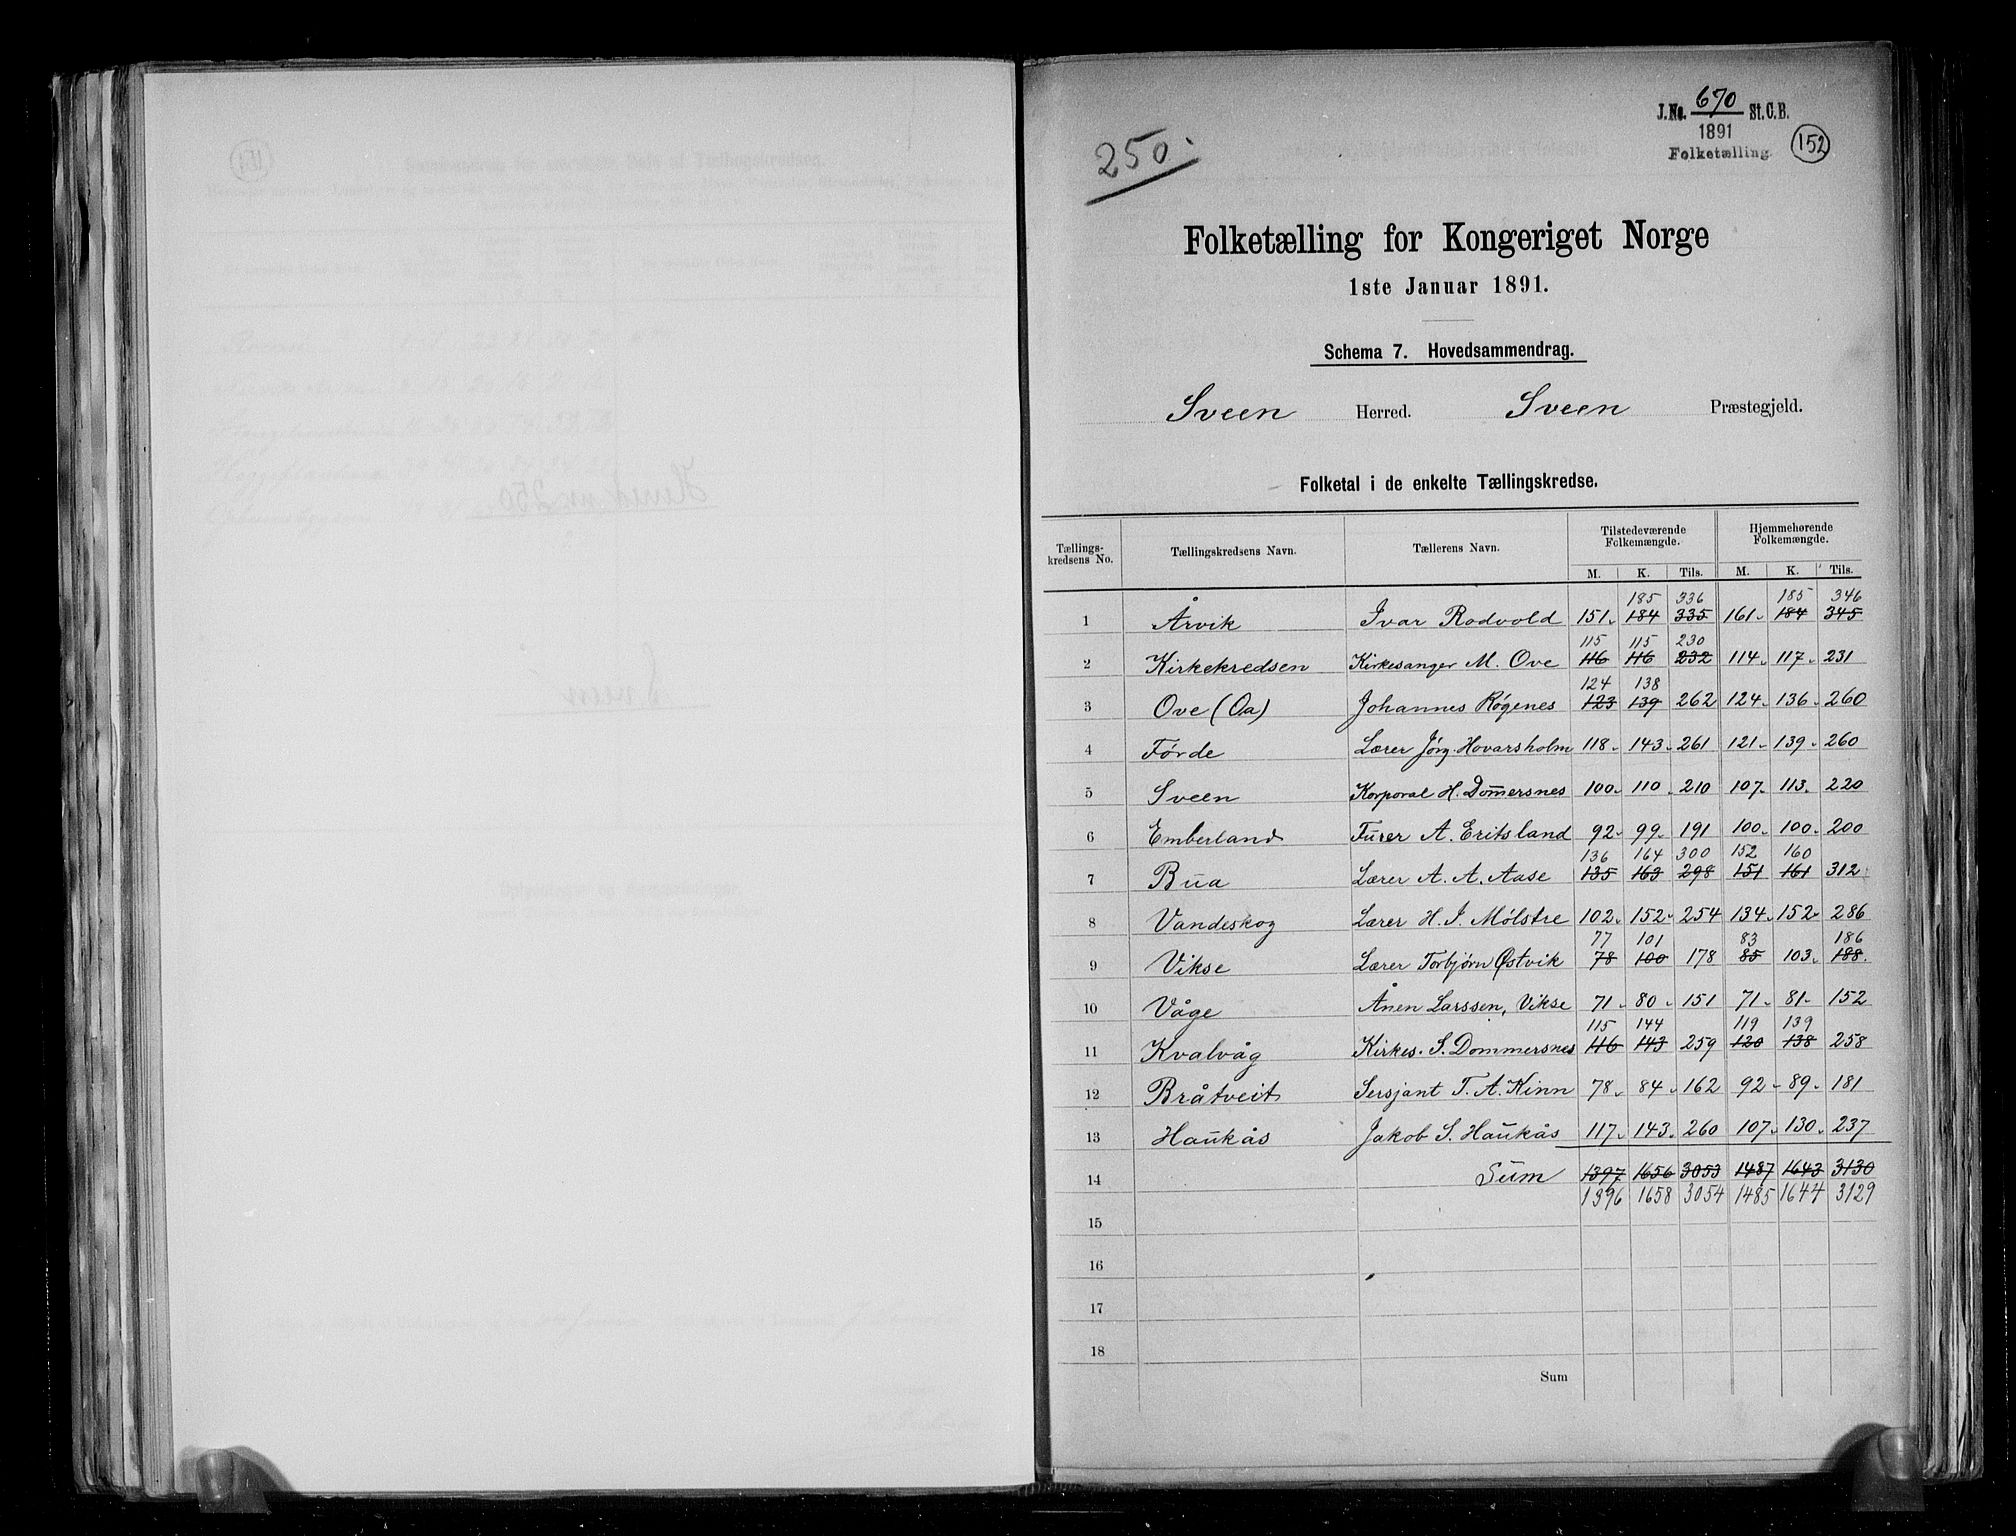 J.No. 670 St.C.B.
1891
Folketælling.
152
250.
Folketælling for Kongeriget Norge
1ste Januar 1891.
Schema 7. Hovedsammendrag.
Sveen Herred. Sveen Præstegjeld.
Folketal i de enkelte Tællingskredse.
Tællings-kredsens No. Tællingskredsens Navn. Tællerens Navn. Tilstedeværende Folkemængde. Hjemmehørende Folkemængde.
M. K. Tils. M. K. Tils.
185 336 185 346
1 Årvik Ivar Rodvold 151 184 335 161 184 345
115 115 230
2 Kirkekredsen Kirkesanger M. Ove 116 116 232 114 117 231
124 138
3 Ove (Oa) Johannes Røgenes 123 139 262 124 136 260
4 Førde Lærer Jørg. Hovarsholm 118 143 261 121 139 260
5 Sveen Korporal H. Domersnes 100 110 210 107 113 220
6 Emberland Furer A. Eritsland 92 99 191 100 100 200
136 164 300 152 160
7 Bua Lærer A. A. Aase 135 163 298 151 161 312
8 Vandeskog Lærer H. J. Mølstre 102 152 254 134 152 286
77 101 83 186
9 Vikse Lærer Torbjørn Østvik 78 100 178 85 103 188
10 Våge Ånen Larssen, Vikse 71 80 151 71 81 152
115 144 119 139
11 Kvalvåg Kirkes. S. Dommersnes 116 143 259 120 138 258
12 Bråtveit Sersjant T. A. Kinn 78 84 162 92 89 181
13 Haukås Jakob S. Haukås 117 143 260 107 130 237
14 Sum 1397 1656 3053 1487 1643 3130
1396 1658 3054 1485 1644 3129
15
16
17
18
Sum